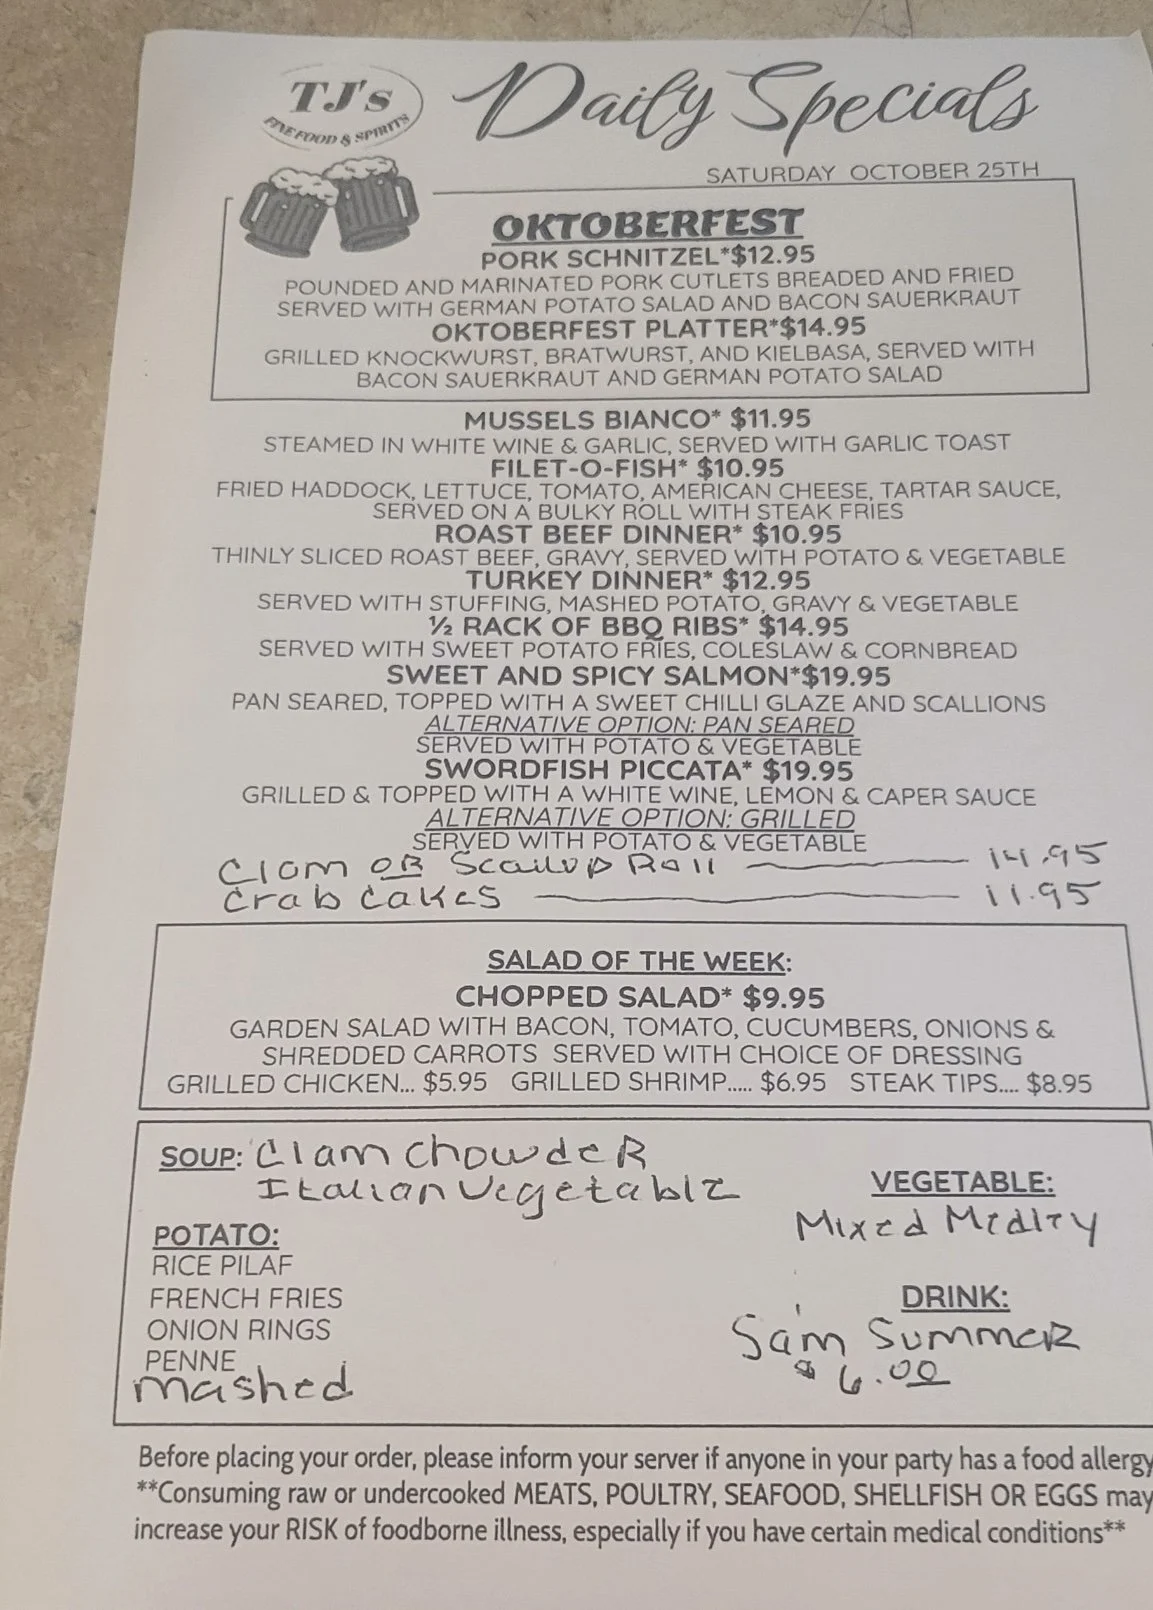 TJ's
FINE FOOD & SPIRITS
Daily Specials
SATURDAY OCTOBER 25TH
OKTOBERFEST
PORK SCHNITZEL*$12.95
POUNDED AND MARINATED PORK CUTLETS BREADED AND FRIED
SERVED WITH GERMAN POTATO SALAD AND BACON SAUERKRAUT
OKTOBERFEST PLATTER*$14.95
GRILLED KNOCKWURST, BRATWURST, AND KIELBASA, SERVED WITH
BACON SAUERKRAUT AND GERMAN POTATO SALAD
MUSSELS BIANCO* $11.95
STEAMED IN WHITE WINE & GARLIC, SERVED WITH GARLIC TOAST
FILET-O-FISH* $10.95
FRIED HADDOCK, LETTUCE, TOMATO, AMERICAN CHEESE, TARTAR SAUCE,
SERVED ON A BULKY ROLL WITH STEAK FRIES
ROAST BEEF DINNER* $10.95
THINLY SLICED ROAST BEEF, GRAVY, SERVED WITH POTATO & VEGETABLE
TURKEY DINNER* $12.95
SERVED WITH STUFFING, MASHED POTATO, GRAVY & VEGETABLE
½ RACK OF BBQ RIBS* $14.95
SERVED WITH SWEET POTATO FRIES, COLESLAW & CORNBREAD
SWEET AND SPICY SALMON*$19.95
PAN SEARED, TOPPED WITH A SWEET CHILLI GLAZE AND SCALLIONS
ALTERNATIVE OPTION: PAN SEARED
SERVED WITH POTATO & VEGETABLE
SWORDFISH PICCATA* $19.95
GRILLED & TOPPED WITH A WHITE WINE, LEMON & CAPER SAUCE
ALTERNATIVE OPTION: GRILLED
SERVED WITH POTATO & VEGETABLE
Clam OR Scallop Roll 14.95
Crab Cakes 11.95
SALAD OF THE WEEK:
CHOPPED SALAD* $9.95
GARDEN SALAD WITH BACON, TOMATO, CUCUMBERS, ONIONS &
SHREDDED CARROTS SERVED WITH CHOICE OF DRESSING
GRILLED CHICKEN... $5.95 GRILLED SHRIMP..... $6.95 STEAK TIPS.... $8.95
SOUP: Clam Chowder
Italian Vegetable
POTATO:
RICE PILAF
FRENCH FRIES
ONION RINGS
PENNE
Mashed
VEGETABLE:
Mixed Medley
DRINK:
Sam Summer
$ 6.00
Before placing your order, please inform your server if anyone in your party has a food allergy
**Consuming raw or undercooked MEATS, POULTRY, SEAFOOD, SHELLFISH OR EGGS may
increase your RISK of foodborne illness, especially if you have certain medical conditions**